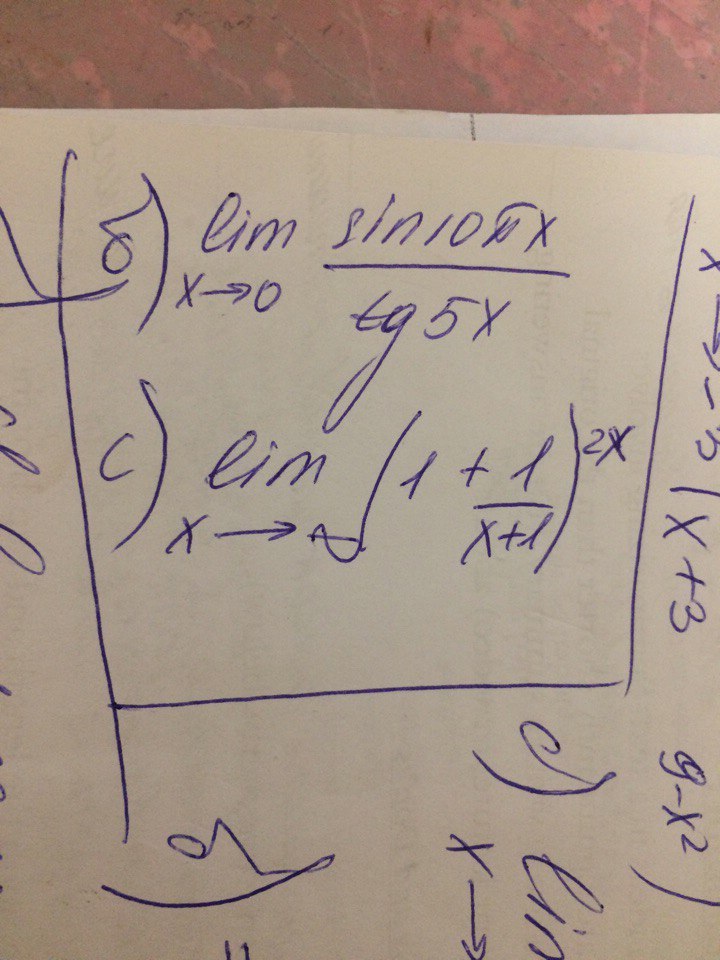 б) lim x→0 sin10πx / tg5x
c) lim x→∞ (1 + 1/(x+1))^2x
x→-3 (x+3
9-x²)
c) lim
x→
б)
=